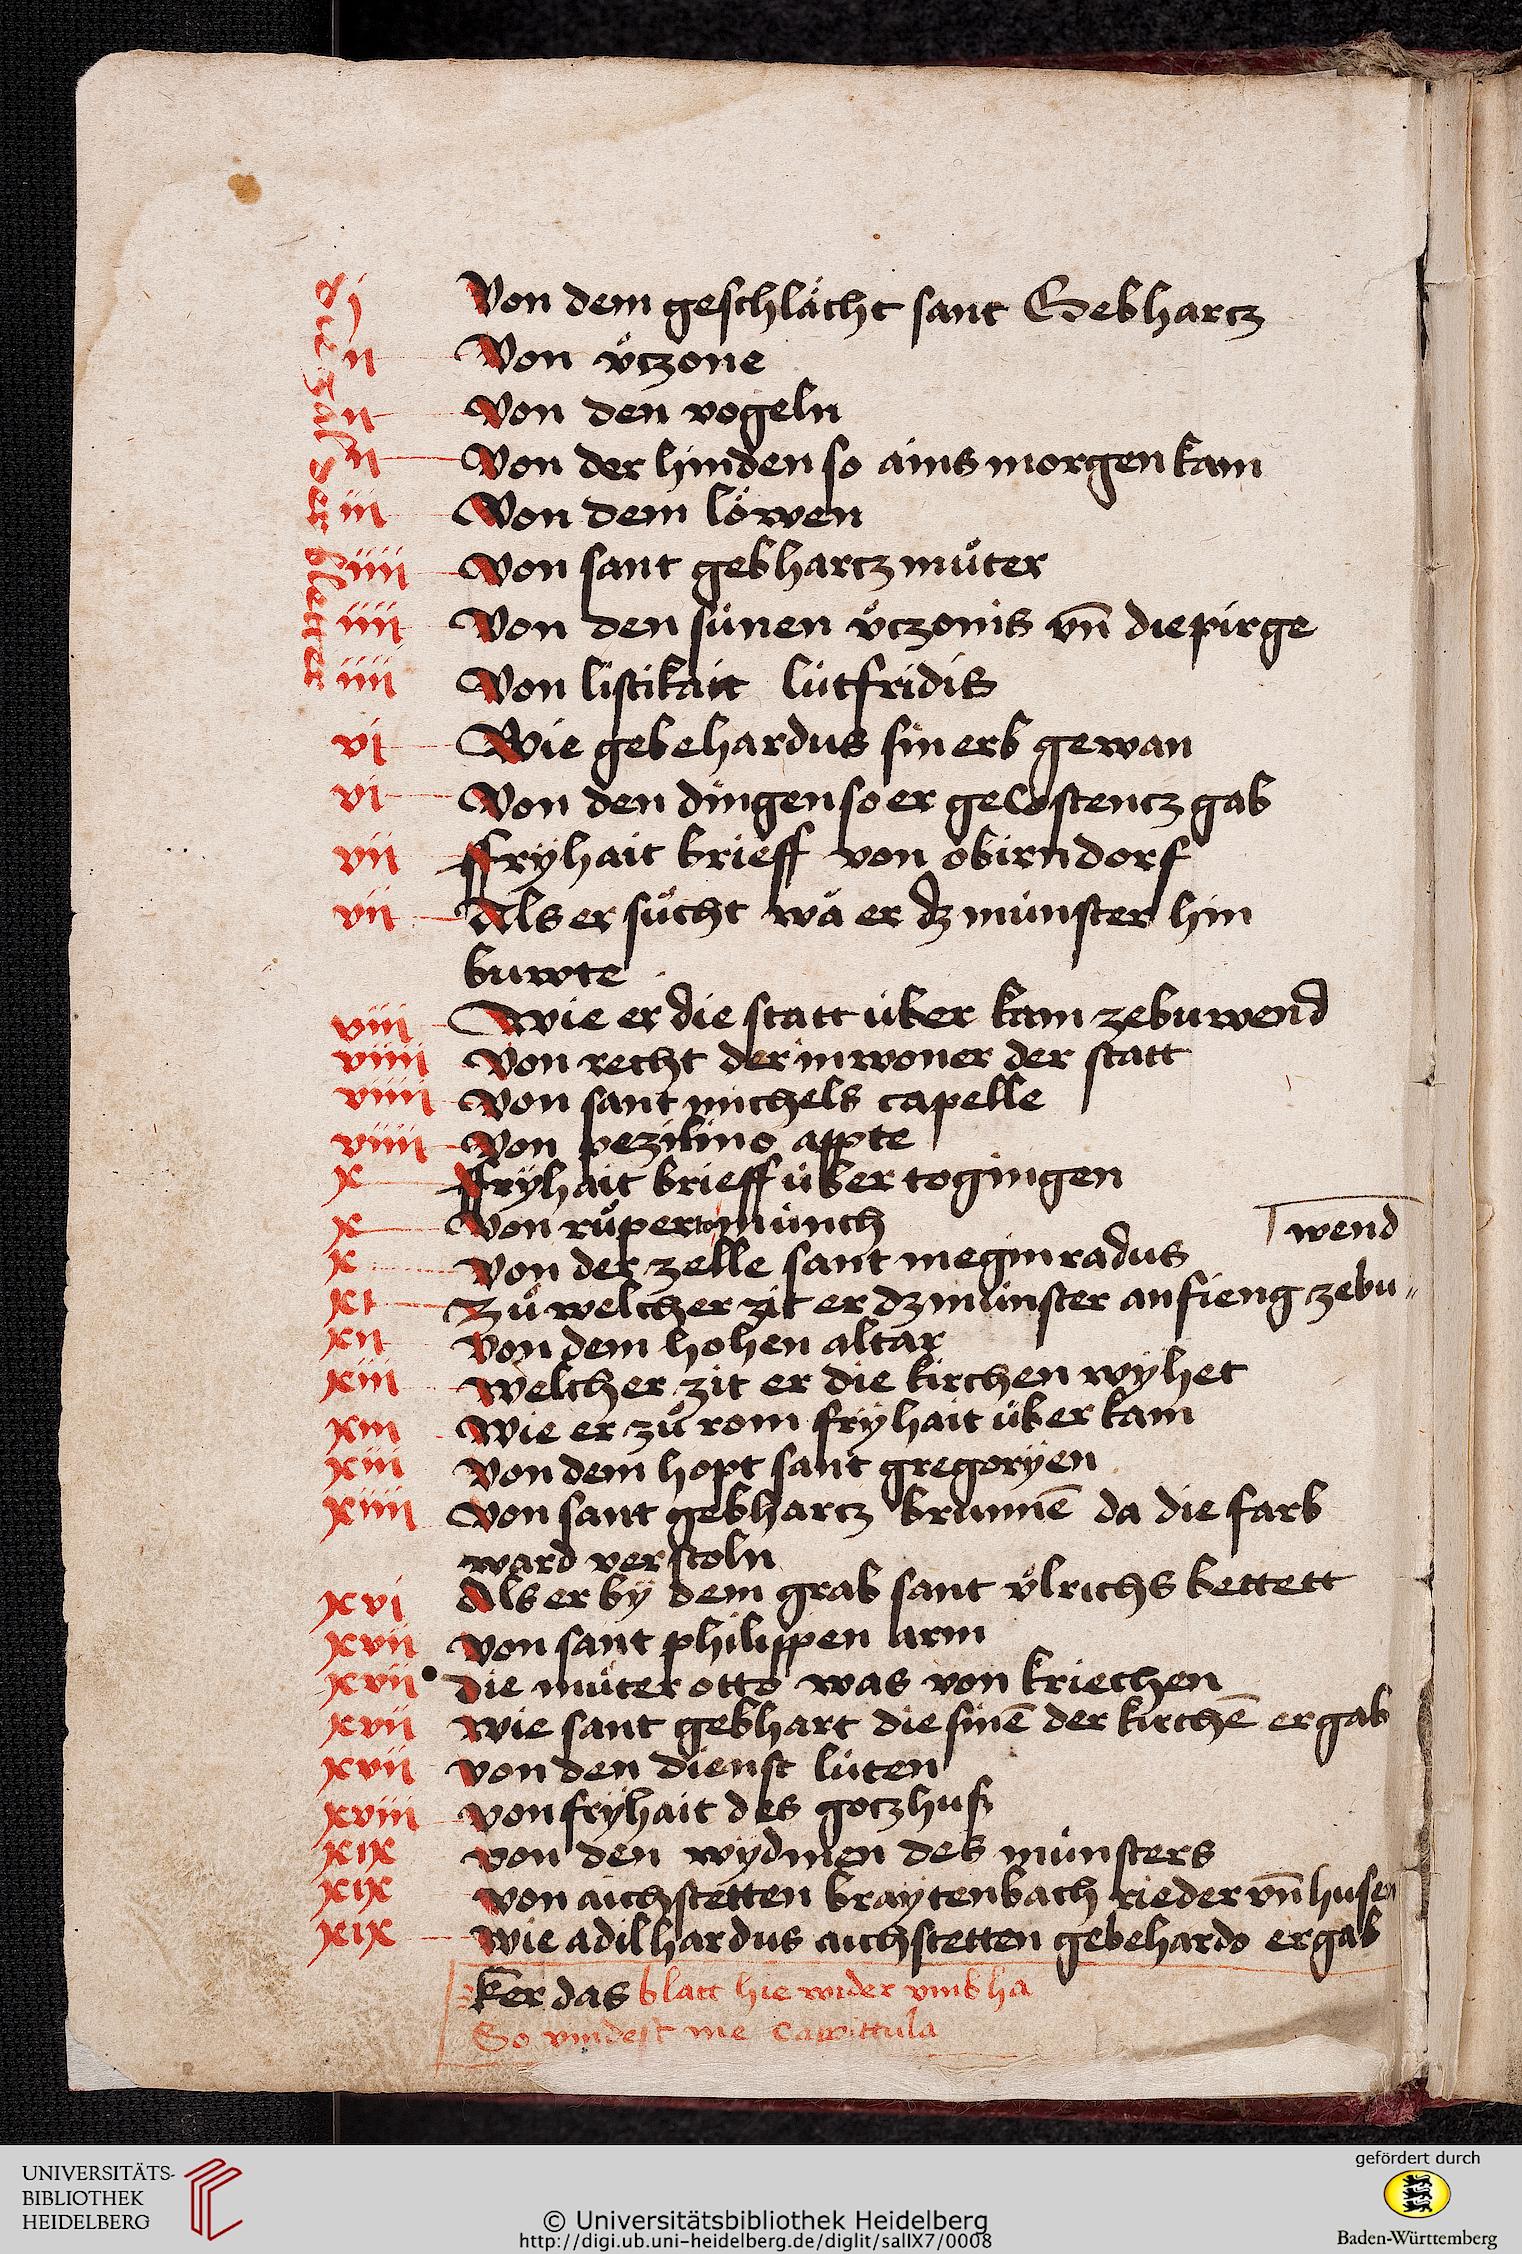 die zal der bletter
j Von dem geschlächt sant Gebharcz
ii Von vͦczone
ii Von den vogeln
ii Von der hinden so ains morgen kam
iii Von dem löwen
iiii Von sant gebharcz muͦter
iiii Von den sünen vͦczonis vn̄ diepirge
iiii Von listikait lütfridis
vi Wie gebehardus sin erb gewan
vi Von den dingen so er ze costencz gab
vii ffryhait brieff von obirndorf
vii Als er suͦcht wa er dz münster hin
buwte
viii Wie er die statt über kam zebuwend
viiii Von recht der inwoner der statt
viiii Von sant michels capelle
viiii Von pezilino appte
x ffryhait brieff über togingen
x Von ruͦperto münch
x Von der zelle sant meginradus
wend
xi Zuͦ welcher zit er dz münster anfieng zebu〃
xii Von dem hohen altar
xiii Welcher zit er die kirchen wyhet
xiii Wie er zuͦ rom fryhait über kam
xiii Von dem hopt sant gregoryen
xiiii Von sant gebharcz brunnē da die farb
ward verstoln
xvi Als er by dem grab sant vͦlrichs bettett
xvii Von sant philippen arm
xvii die muͦter otto was von kriechen
xvii Wie sant gebhart die sinē der kirchē ergab
xvii Von den dienst lüten
xviii Von fryhait des goczhuß
xix Von den wydmen des münsters
xix Von aichstetten braytenbach rieder vn̄ husen
xix Wie adilhardus aichstetten gebehardo ergab
ker das blatt hie wider vmb ha
So vindest me Capittula
UNIVERSITÄTS-
BIBLIOTHEK
HEIDELBERG
© Universitätsbibliothek Heidelberg
http://digi.ub.uni-heidelberg.de/diglit/salIX7/0008
gefördert durch
Baden-Württemberg